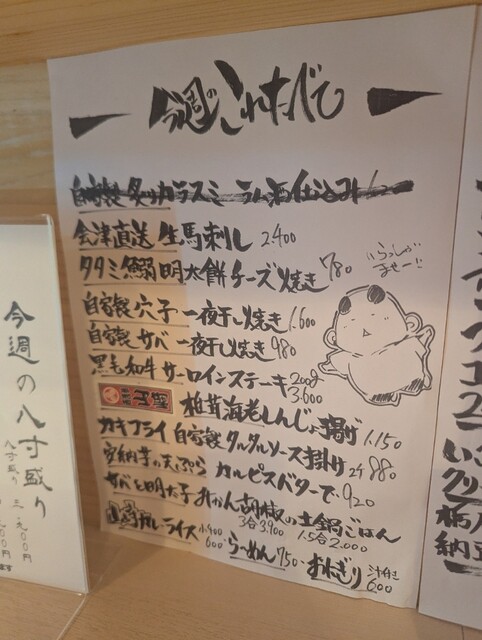 今週のこれたべて
自家製 炙りカラスミ ラム酒仕込み
会津直送 生馬刺し 2.400
タタミ鰯明太餅チーズ焼き 780
いらっしゃいませー!!
自家製 穴子 一夜干し焼き 1.600
自家製 サバ 一夜干し焼き 980
黒毛和牛 サーロインステーキ 200g 3.600
椎茸海老しんじょ揚げ 1.150
カキフライ 自家製タルタルソース掛け 2ケ 880
安納芋の天ぷら カルピスバターで 920
サバと明太子 みかん胡椒の土鍋ごはん
3合3.900 1.5合2.000
カレーライス 1.400 600 らーめん 750 おにぎり 汁付き 600
今週の八寸盛り
八寸盛り 三、九〇〇円